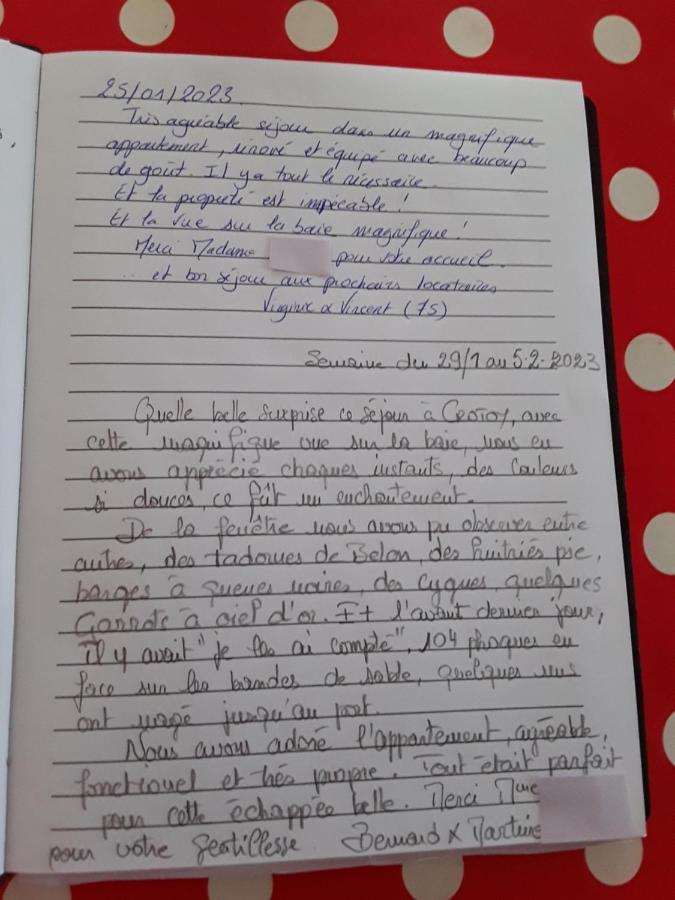 25/01/2023
Très agréable séjour dans un magnifique
appartement, rénové et équipé avec beaucoup
de goût. Il y a tout le nécessaire.
Et la propreté est impécable !
Et la vue sur la baie magnifique !
Merci Madame pour votre accueil.
... et bon séjour aux prochains locataires
Virginie & Vincent (75)
Semaine du 29/1 au 5-2-2023
Quelle belle surprise ce séjour à Crotoy, avec
cette magnifique vue sur la baie, nous en
avons apprécié chaques instants, des couleurs
si douces, ce fût un enchantement.
De la fenêtre nous avons pu observer entre
autres, des tadornes de Belon, des huitriés pie,
barges à queues noires, des cygnes, quelques
Garrots à oeil d'or. Et l'avant dernier jour,
il y avait "je les ai compté", 104 phoques en
face sur les bandes de sable, quelques uns
ont nagé jusqu'au port.
Nous avons adoré l'appartement, agréable,
fonctionel et très propre. Tout était parfait
pour cette échappée belle. Merci Mme
pour votre gentillesse Bernard & Martine